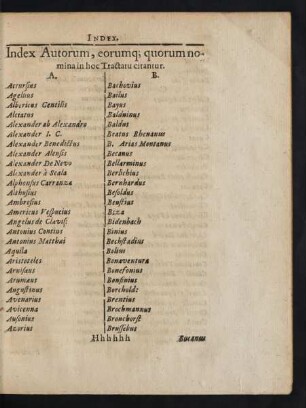 INDEX.
Index Autorum, eorumq; quorum no-
mina in hoc Tractatu citantur.
A.
Accursius
Agellius
Albericus Gentilis
Alciatus
Alexander ab Alexandro
Alexander I. C.
Alexander Benedictus
Alexander Alensis
Alexander De Nevo
Alexander à Scala
Alphonsus Carranza
Althusius
Ambrosius
Americus Vespucius
Angelus de Clavas.
Antonius Contius
Antonius Matthæi
Aquila
Aristoteles
Arumaus
Augustinus
Aventinus
Avicenna
Ausonius
Azorius
B.
Bachovius
Bailus
Bayus
Balduinus
Baldus
Beatus Rhenanus
B. Arias Montanus
Becanus
Bellarminus
Berlichius
Bernhardus
Besoldus
Beustius
Beza
Bidenbach
Binius
Bechstadius
Bonaventura
Bonefonius
Bonfinius
Bercholdt
Brentius
Brochmannus
Bronchorst
Hhhhhh